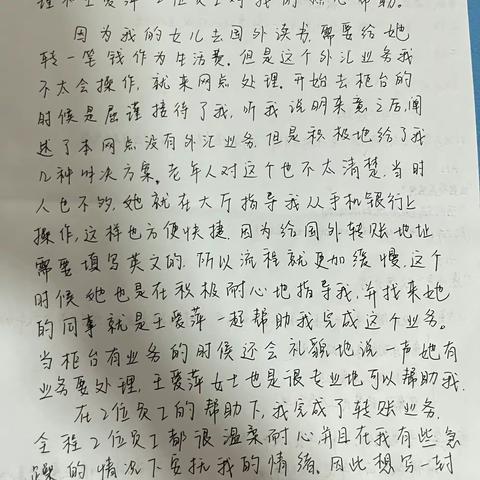 理和王爱萍2位女士对我的热心帮助。
因为我的女儿去国外读书,需要给她
转一笔钱作为生活费。但是这个外汇业务我
不太会操作,就来网点处理。开始去柜台的
时候是屈谨接待了我,听我说明来意之后,阐
述了本网点没有外汇业务,但是积极地给了我
几种解决方案。老年人对这个也不太清楚,当时
人也不多,她就在大厅指导我从手机银行上
操作,这样也方便快捷。因为给国外转账地址
需要填写英文的,所以流程就更加缓慢,这个
时候她也是在积极耐心地指导我,并找来她
的同事就是王爱萍一起帮助我完成这个业务。
当柜台有业务的时候还会礼貌地说一声她有
业务要处理,王爱萍女士也是很专业地可以帮助我.
在2位员工的帮助下,我完成了转账业务,
全程2位员工都很温柔耐心,并且在我有些急
躁的情况下安抚我的情绪。因此想写一封